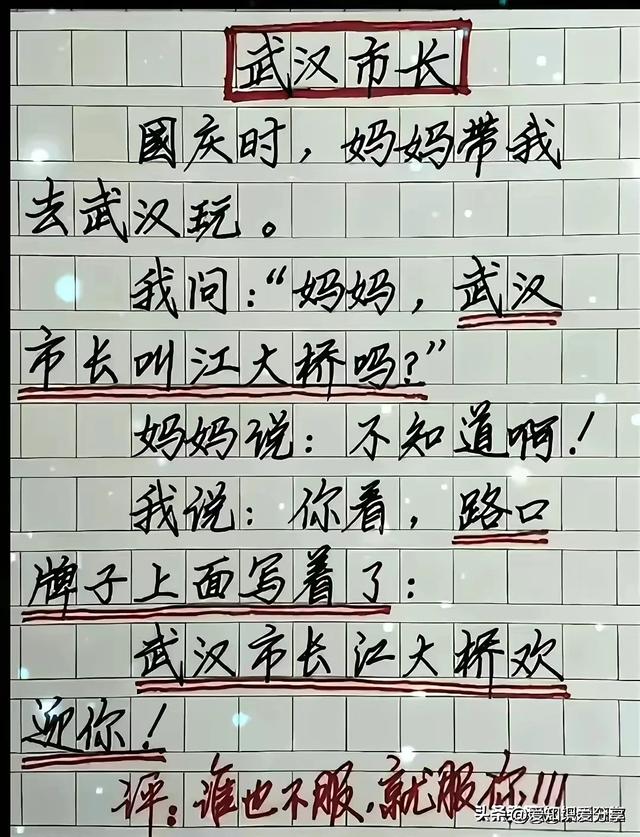 武汉市长
國庆时，妈妈带我
去武汉玩。
我问：“妈妈，武汉
市长叫江大桥吗？”
妈妈说：不知道啊！
我说：你看，路口
牌子上面写着了：
武汉市长江大桥欢
迎你！
评：谁也不服，就服你!!!
头条@爱知识爱分享